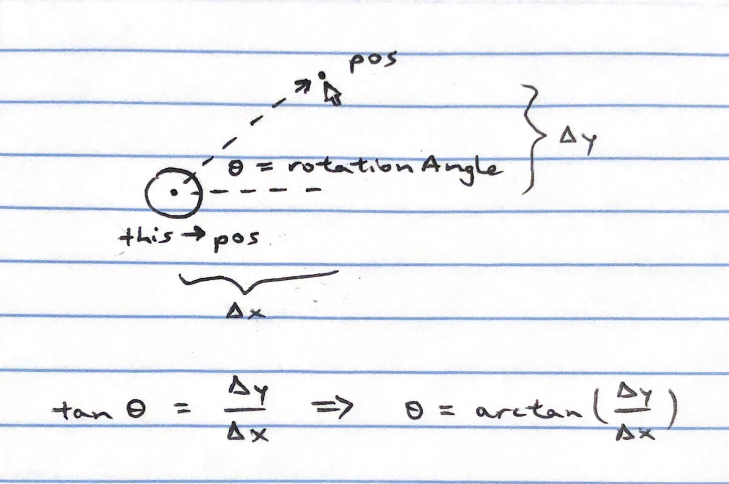 pos
Δy
θ = rotation Angle
this → pos
Δx
tan θ = Δy/Δx ⇒ θ = arctan (Δy/Δx)